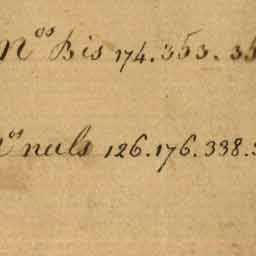 Nos Bis 174.353.35
Nos nuls 126.176.338.3